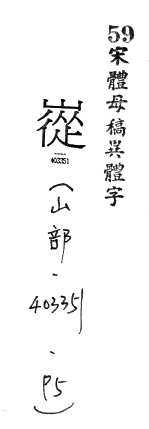 59宋體母稿異體字
嵸
403351
(山部.403351.P5)